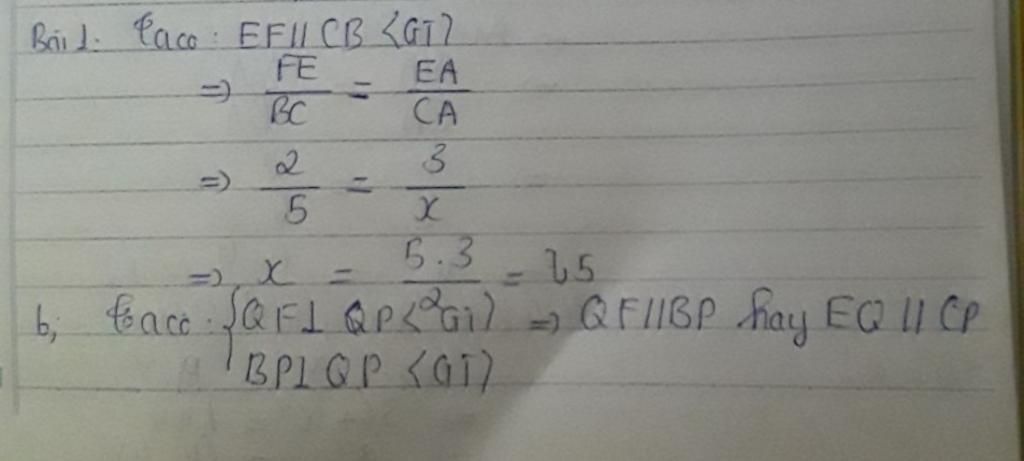 Bài 1. Ta có: EF // CB <GT)
=> FE/BC = EA/CA
=> 2/5 = 3/x
=> x = 5.3/2 = 7,5
b, Ta có: { QF⊥ QP <GT) => QF//BP hay EQ // CP
BP⊥ QP <GT)